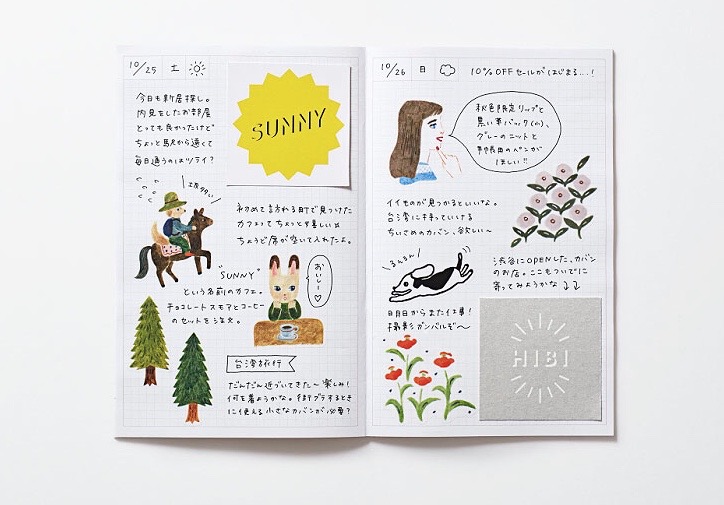 10/25 土
今日も新居探し。
内見をしたお部屋
とっても良かったけど
ちょっと駅から遠くて
毎日通うのはツライ?
SUNNY
初めて訪れる町で見つけた
カフェってちょっと嬉しい。
ちょうど席が空いて入れたよ。
"SUNNY"
という名前のカフェ。
チョコレートスモアとコーヒー
のセットを注文。
おいしー♡
台湾旅行
だんだん近づいてきた〜楽しみ!
何を着ようかな。街ブラするとき
に使える小さなカバンが必要?
10/26 日 10%OFFセールがはじまる...!
秋色限定リップと
黒い革バック(小)、
グレーのニットと
手帳用のペンが
ほしい!!
イイモのが見つかるといいな。
台湾に持っていける
ちいさめのカバン、欲しい〜
るんるん!
渋谷にOPENした、カバン
のお店。ここもついでに
寄ってみようかな
明日からまた仕事!
撮影ガンバルぞ〜
HIBI